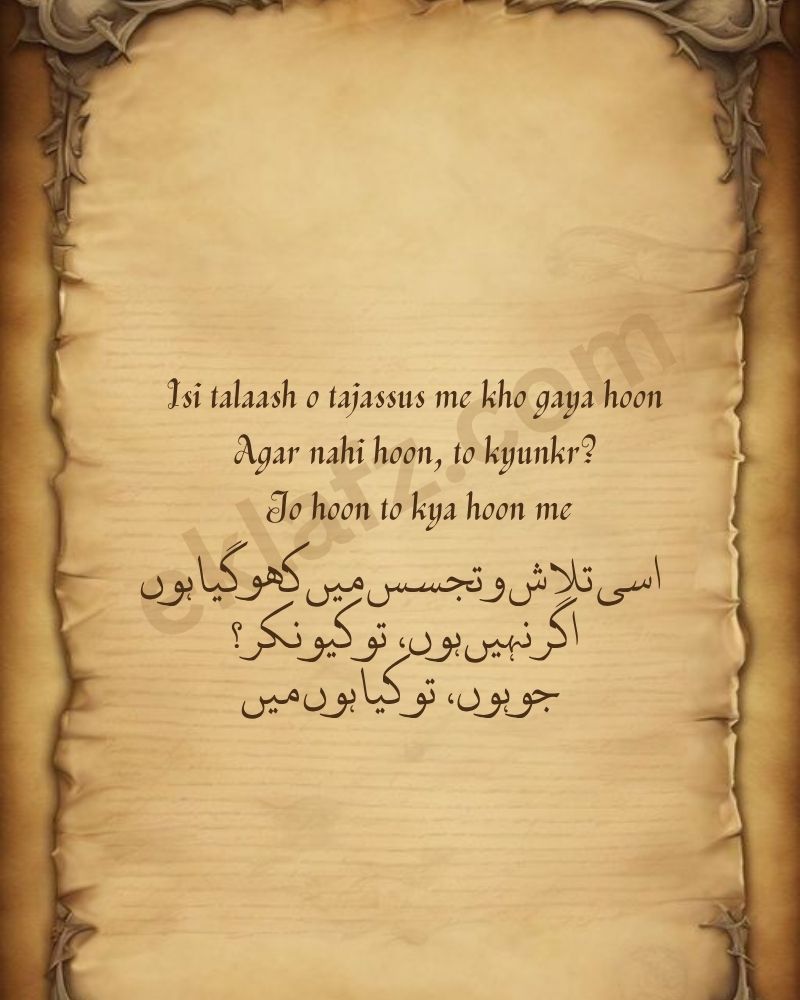 Isi talaash o tajassus me kho gaya hoon
Agar nahi hoon, to kyunkr?
Jo hoon to kya hoon me
اسی تلاش و تجسس میں کھو گیا ہوں
اگر نہیں ہوں، تو کیونکر؟
جو ہوں، تو کیا ہوں میں
eklafz.com